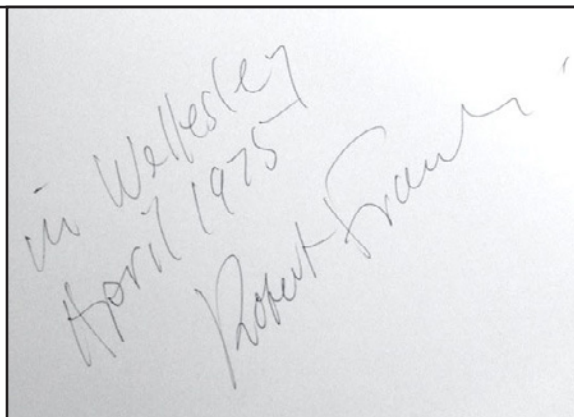 in Wellesley
April 1975
Robert Frank